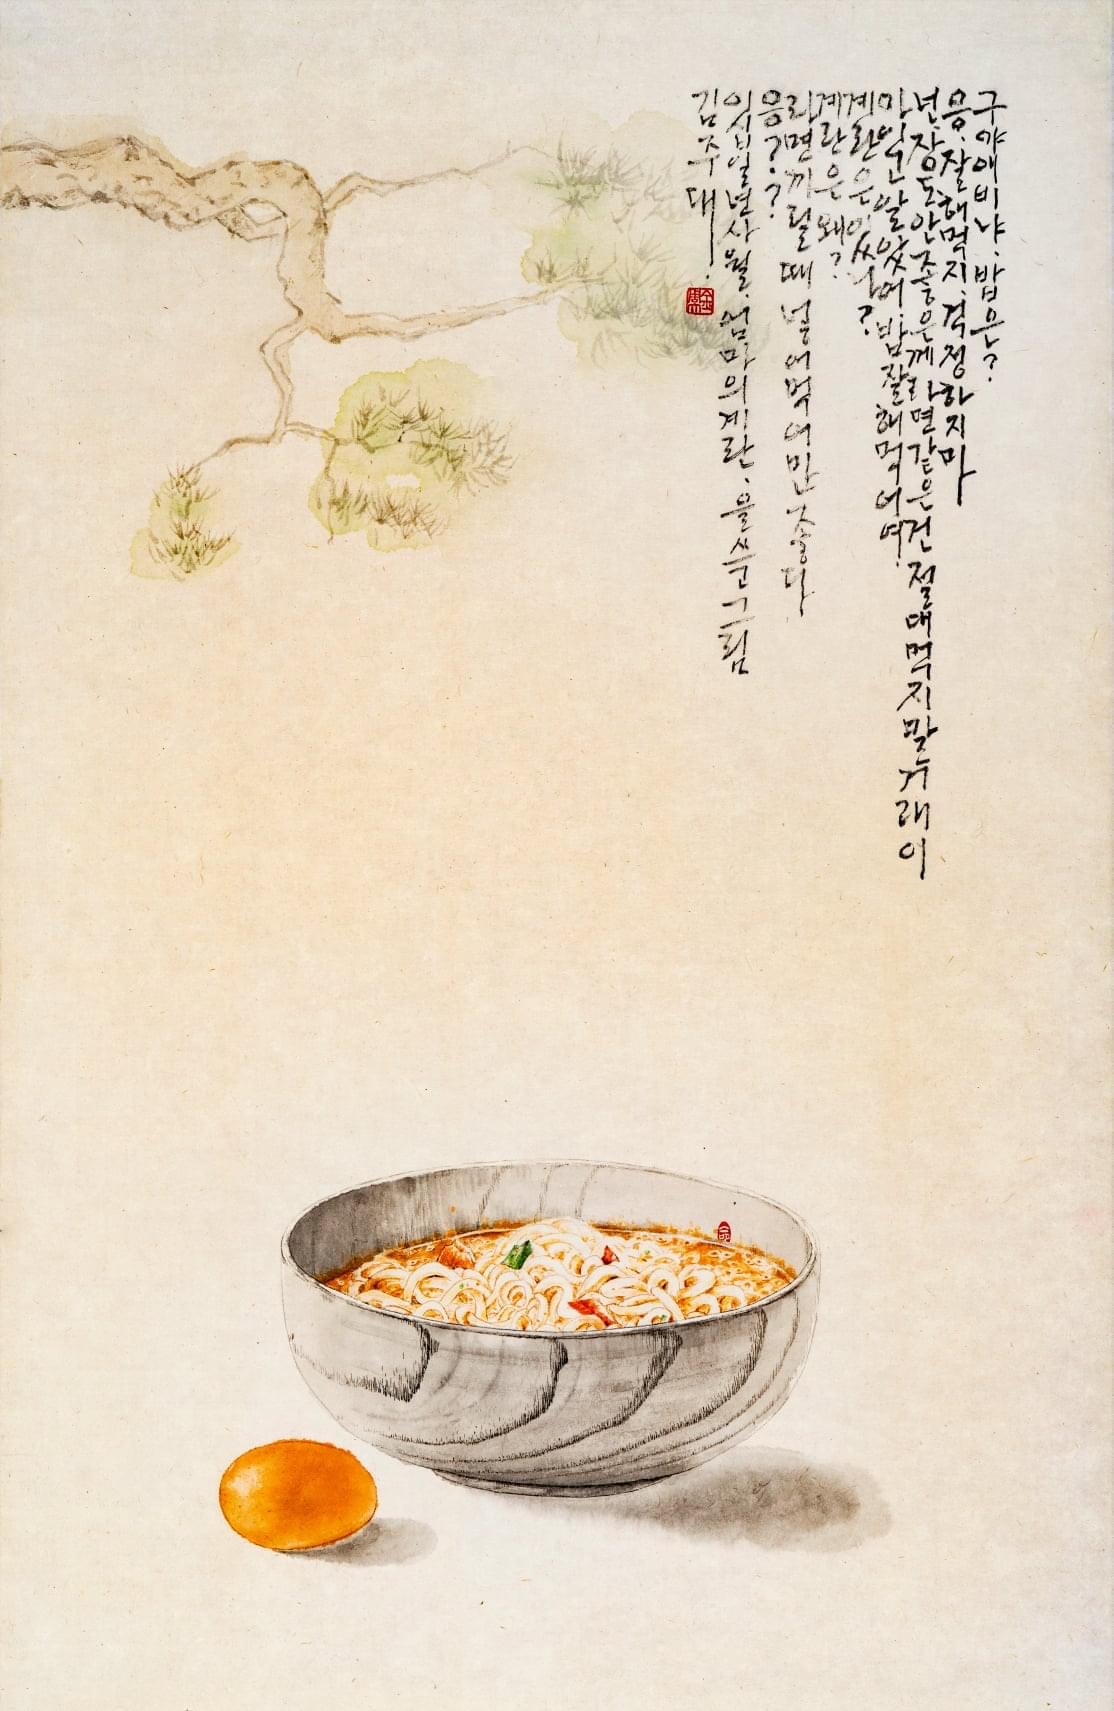 구야애비냐. 밥은?
응. 잘해먹지. 걱정하지마
넌장도안좋은께라면같은건절대먹지말거래이
알았어. 밥잘해먹어여.
계란은있나?
계란은왜?
라면끼릴때넣어먹어만좋다
응??
이십일년사월. 엄마의계란.을쓰고그림
김주대